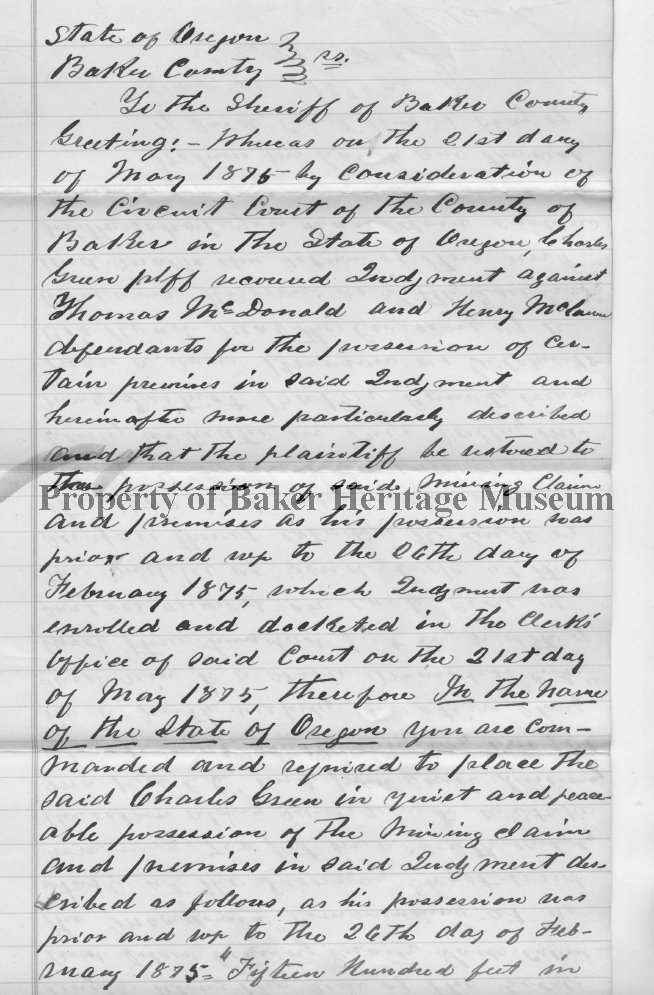 State of Oregon
Baker County } ss.
To the Sheriff of Baker County
Greeting:- Whereas on the 21st day
of May 1875 by Consideration of
the Circuit Court of the County of
Baker in the State of Oregon, Charles
Green plff recovered Judgment against
Thomas McDonald and Henry
defendants for the possession of cer-
tain premises in said Judgment and
hereinafter more particularly described
and that the plaintiff be restored to
the possession of said Mining Claim
Property of Baker Heritage Museum
and premises as his possession was
prior and up to the 26th day of
February 1875, which Judgment was
enrolled and docketed in the Clerk's
Office of said Court on the 21st day
of May 1875, therefore In the name
of the State of Oregon you are com-
manded and required to place the
said Charles Green in quiet and peace
able possession of the Mining claim
and premises in said Judgment des-
cribed as follows, as his possession was
prior and up to the 26th day of Feb-
ruary 1875= "Fifteen Hundred feet in